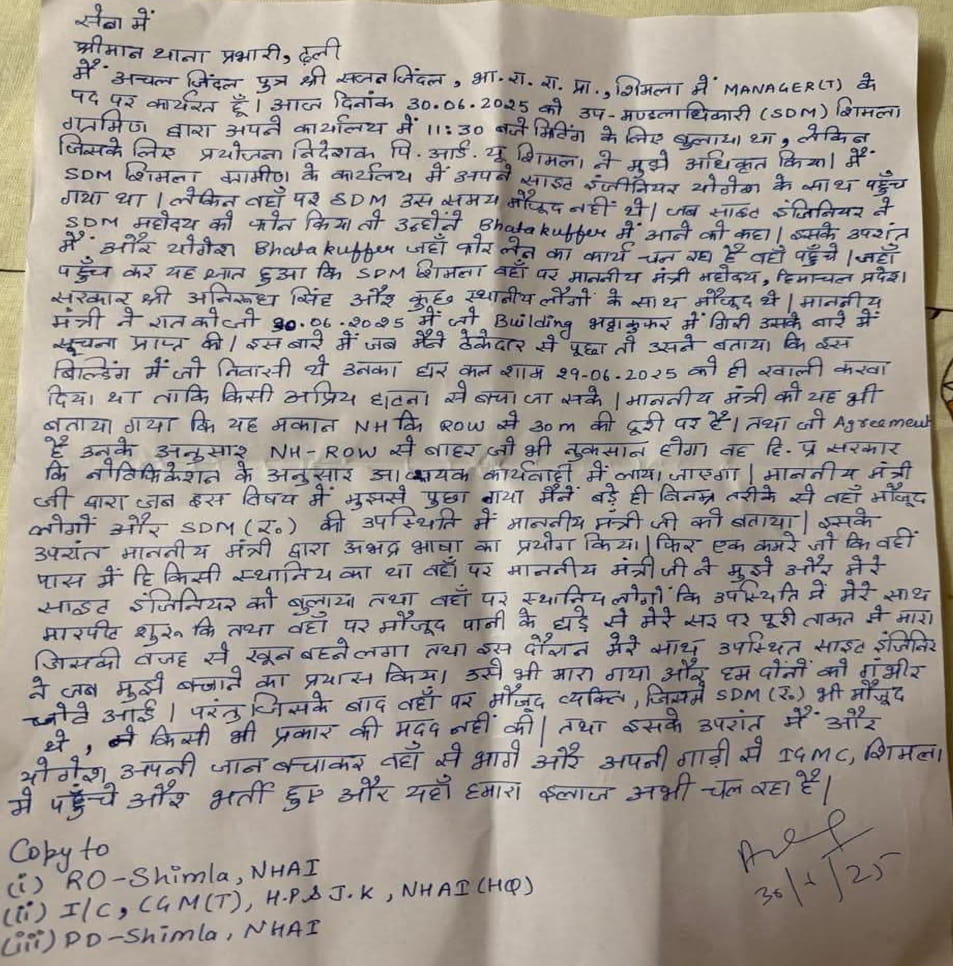 सेवा में
श्रीमान थाना प्रभारी, ढली
मैं अचल जिंदल पुत्र श्री सजन जिंदल, भा. रा. रा. प्रा., शिमला में MANAGER(T) के
पद पर कार्यरत हूँ। आज दिनांक 30.06.2025 को उप-मण्डलाधिकारी (SDM) शिमला
ग्रामिण द्वारा अपने कार्यालय में 11:30 बजे मिटिंग के लिए बुलाया था, लेकिन
जिसके लिए प्रयोजना निदेशक पि. आई. यू शिमला ने मुझे अधिकृत किया। मैं
SDM शिमला ग्रामीण के कार्यालय में अपने साइट इंजीनियर योगेश के साथ पहुँच
गया था। लेकिन वहाँ पर SDM उस समय मौजूद नहीं थे। जब साइट इंजिनियर ने
SDM महोदय को फोन किया तो उन्होंने Bhatakuffer में आने को कहा। इसके उपरांत
मैं और योगेश Bhatakuffer जहाँ फोर लेन का कार्य चल रहा है वहाँ पहुँचे। जहाँ
पहुँच कर यह ज्ञात हुआ कि SDM शिमला वहाँ पर माननीय मंत्री महोदय, हिमाचल प्रदेश
सरकार श्री अनिरूध सिंह और कुछ स्थानीय लोगों के साथ मौजूद थे। माननीय
मंत्री ने रात को जो 30.06.2025 में जो Building भट्टाकुफर में गिरी उसके बारे में
सूचना प्राप्त की। इस बारे में जब मैंने ठेकेदार से पूछा तो उसने बताया कि इस
बिल्डिंग में जो निवासी थे उनका घर कल शाम 29-06-2025 को ही खाली करवा
दिया था ताकि किसी अप्रिय घटना से बचा जा सके। माननीय मंत्री को यह भी
बताया गया कि यह मकान NH कि ROW से 30m की दूरी पर है। तथा जो Agreement
है उनके अनुसार NH-ROW से बाहर जो भी नुकसान होगा वह हि. प्र सरकार
कि नोटिफिकेशन के अनुसार आवश्यक कार्यवाही में लाया जाएगा। माननीय मंत्री
जी द्वारा जब इस विषय में मुझसे पुछा गया मैनें बड़े ही विनम्र तरीके से वहाँ मौजूद
लोगों और SDM (रू०) की उपस्थिति में माननीय मंत्री जी को बताया। इसके
उपरांत माननीय मंत्री द्वारा अभद्र भाषा का प्रयोग किया। फिर एक कमरे जो कि वहीं
पास में हि किसी स्थानिय का था वहाँ पर माननीय मंत्री जी ने मुझे और मेरे
साइट इंजिनियर को बुलाया तथा वहाँ पर स्थानिय लोगों कि उपस्थिति में मेरे साथ
मारपीट शुरू कि तथा वहाँ पर मौजूद पानी के घड़े से मेरे सर पर पूरी ताकत से मारा
जिसकी वजह से खून बहने लगा तथा इस दौरान मेरे साथ उपस्थित साइट इंजिनिर
ने जब मुझे बचाने का प्रयास किया उसे भी मारा गया और हम दोनों को गंभीर
चोटे आई। परंतु जिसके बाद वहाँ पर मौजूद व्यक्ति, जिसमें SDM (रू०) भी मौजूद
थे, ने किसी भी प्रकार की मदद नहीं की। तथा इसके उपरांत मैं और
योगेश अपनी जान बचाकर वहाँ से भागे और अपनी गाड़ी से IGMC, शिमला
में पहुँचे और भर्ती हुए और यहाँ हमारा इलाज अभी चल रहा है।
Copy to
(i) RO-Shimla, NHAI
(ii) I/C, CGM(T), H.P & J.K, NHAI (HQ)
(iii) PD-Shimla, NHAI